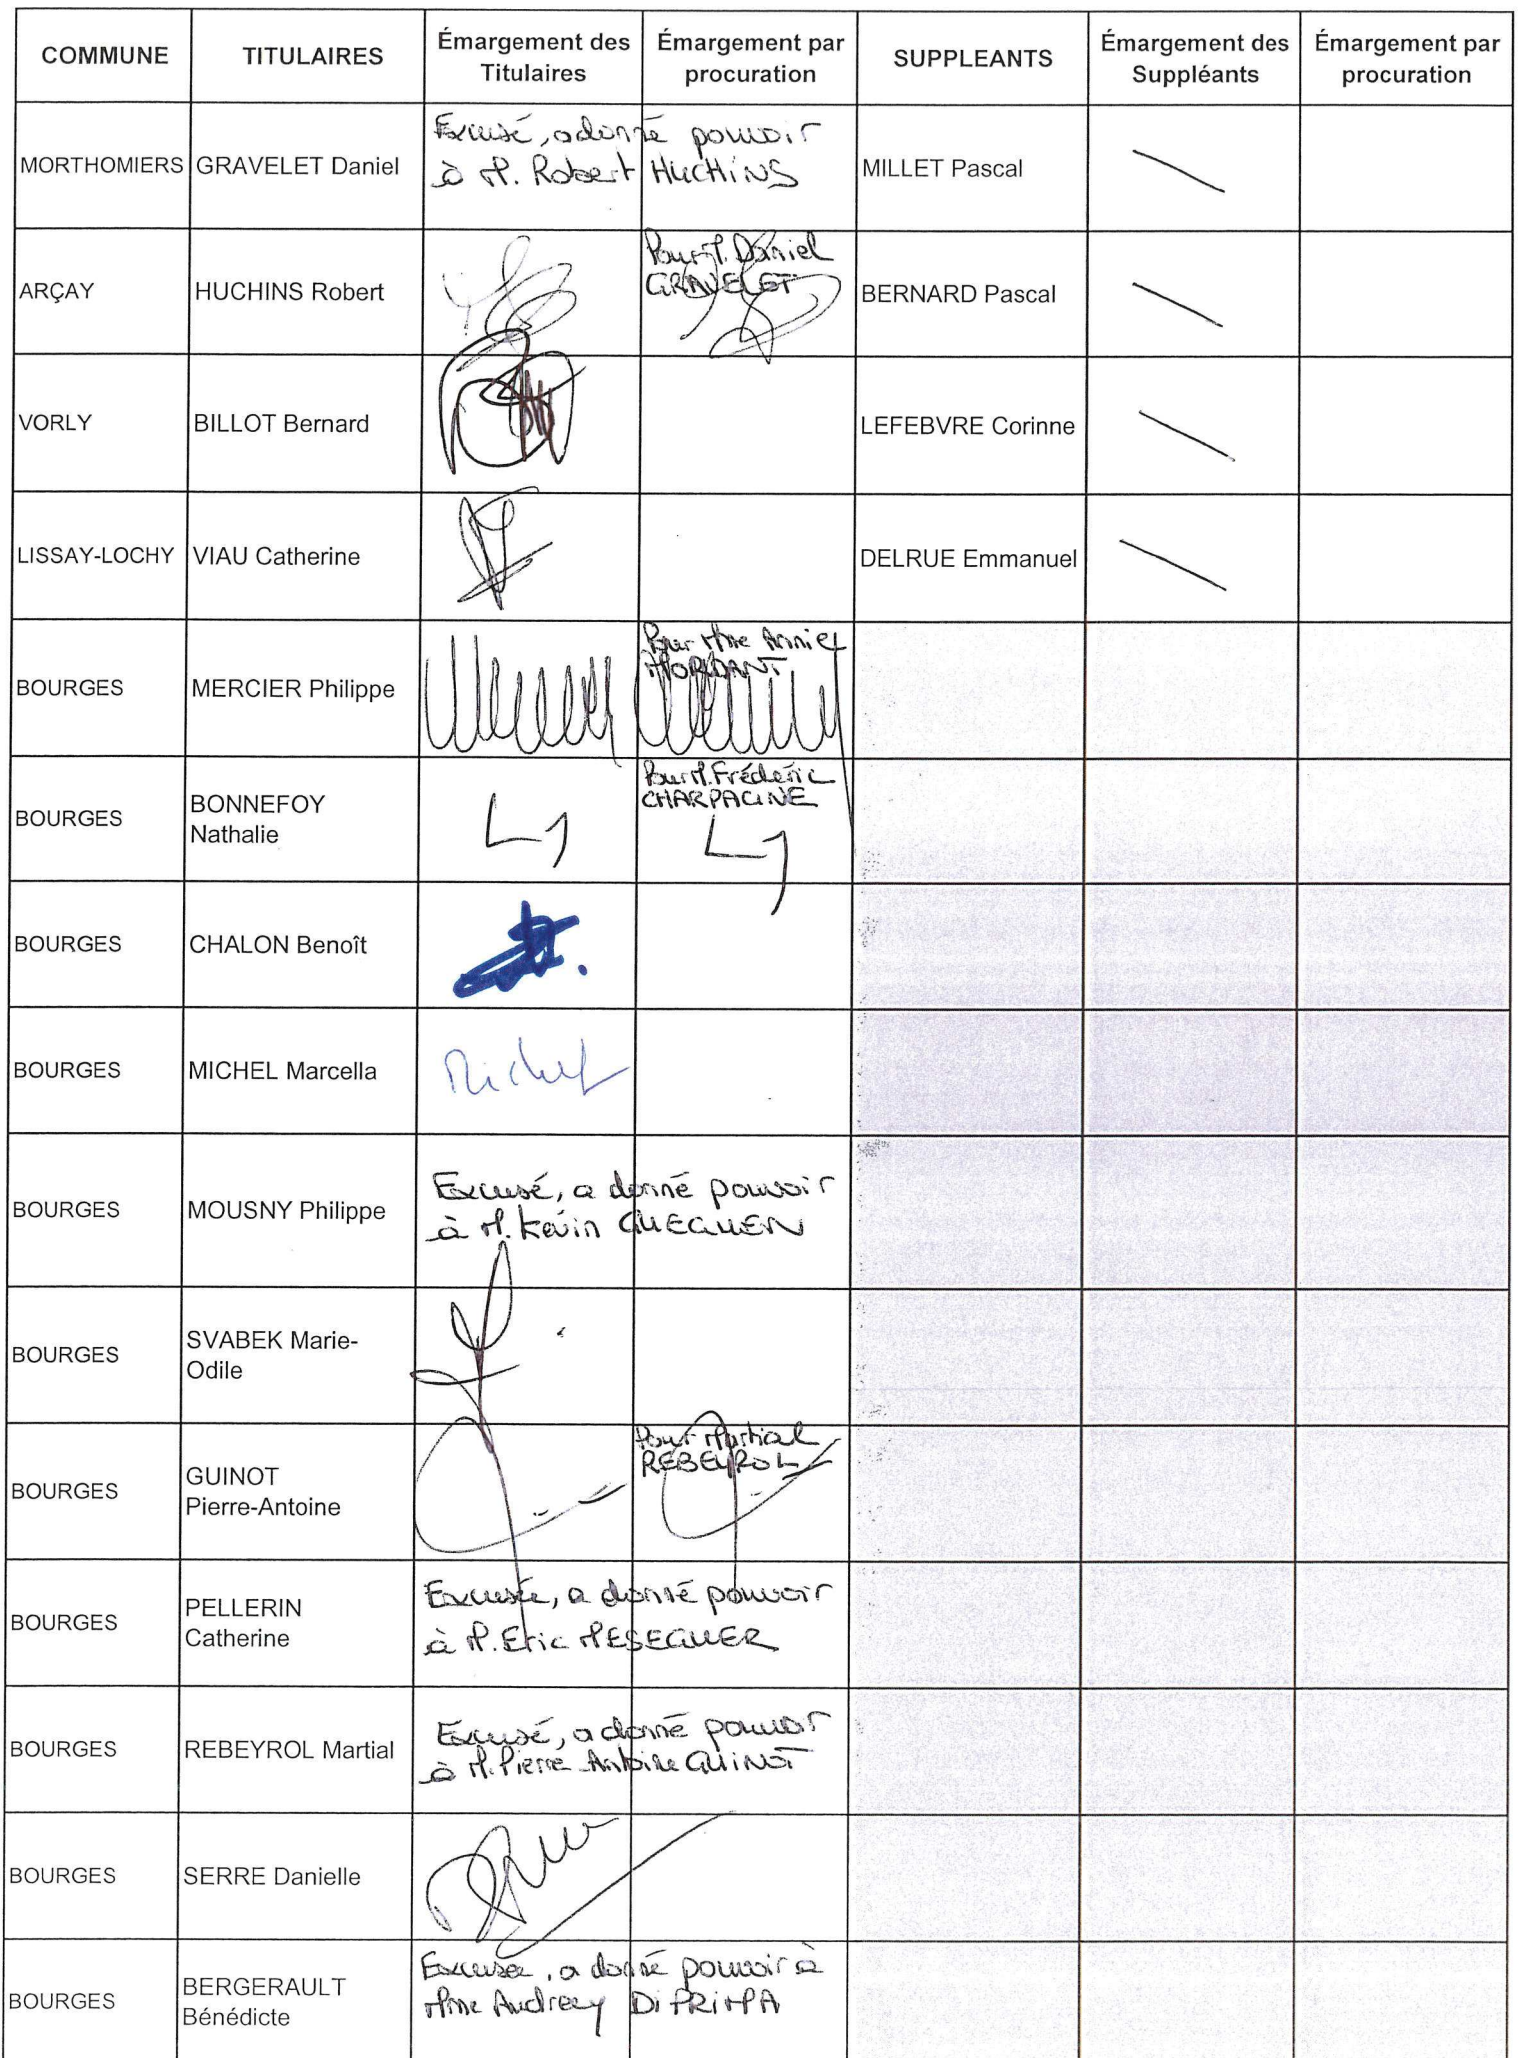 COMMUNE TITULAIRES Émargement des Titulaires Émargement par procuration SUPPLEANTS Émargement des Suppléants Émargement par procuration
MORTHOMIERS GRAVELET Daniel Excusé, a donné pouvoir MILLET Pascal
à M. Robert HUCHINS
ARÇAY HUCHINS Robert Pour M. Daniel BERNARD Pascal
GRAVELET
VORLY BILLOT Bernard LEFEBVRE Corinne
LISSAY-LOCHY VIAU Catherine DELRUE Emmanuel
BOURGES MERCIER Philippe Pour Mme Annie
MORDANT
BOURGES BONNEFOY Pour M. Frédéric
Nathalie CHARPAGNE
BOURGES CHALON Benoît
BOURGES MICHEL Marcella Michel
BOURGES MOUSNY Philippe Excusé, a donné pouvoir
à M. Kévin GUEGUEN
BOURGES SVABEK Marie-
Odile
BOURGES GUINOT Pour Martial
Pierre-Antoine REBEYROL
BOURGES PELLERIN Excusée, a donné pouvoir
Catherine à M. Eric MESEGUER
BOURGES REBEYROL Martial Excusé, a donné pouvoir
à M. Pierre-Antoine GUINOT
BOURGES SERRE Danielle
BOURGES BERGERAULT Excusée, a donné pouvoir à
Bénédicte Mme Audrey Di PRIMA